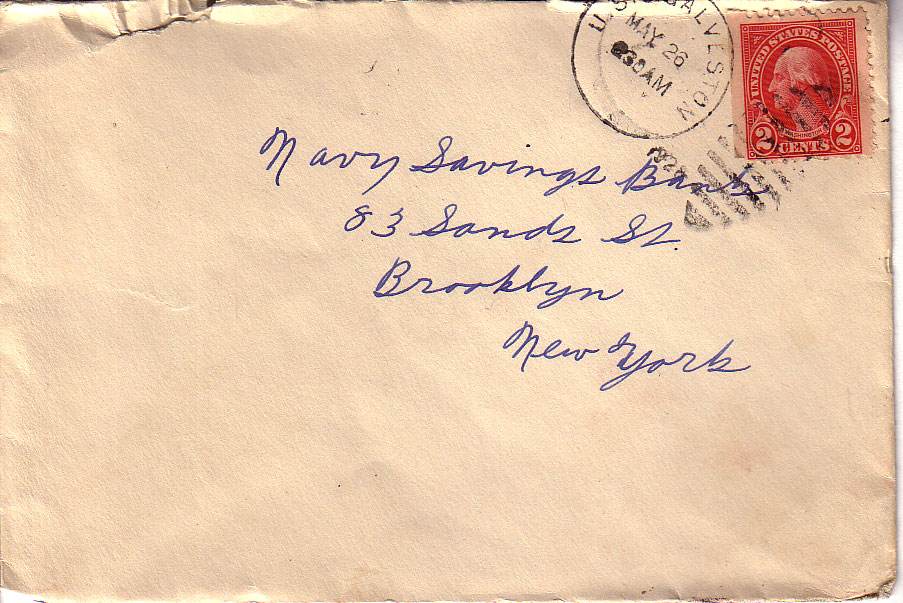 U.S.S. GALVESTON
MAY 26
830AM
UNITED STATES POSTAGE
WASHINGTON
2 CENTS 2
Navy Savings Bank
83 Sands St.
Brooklyn
New York